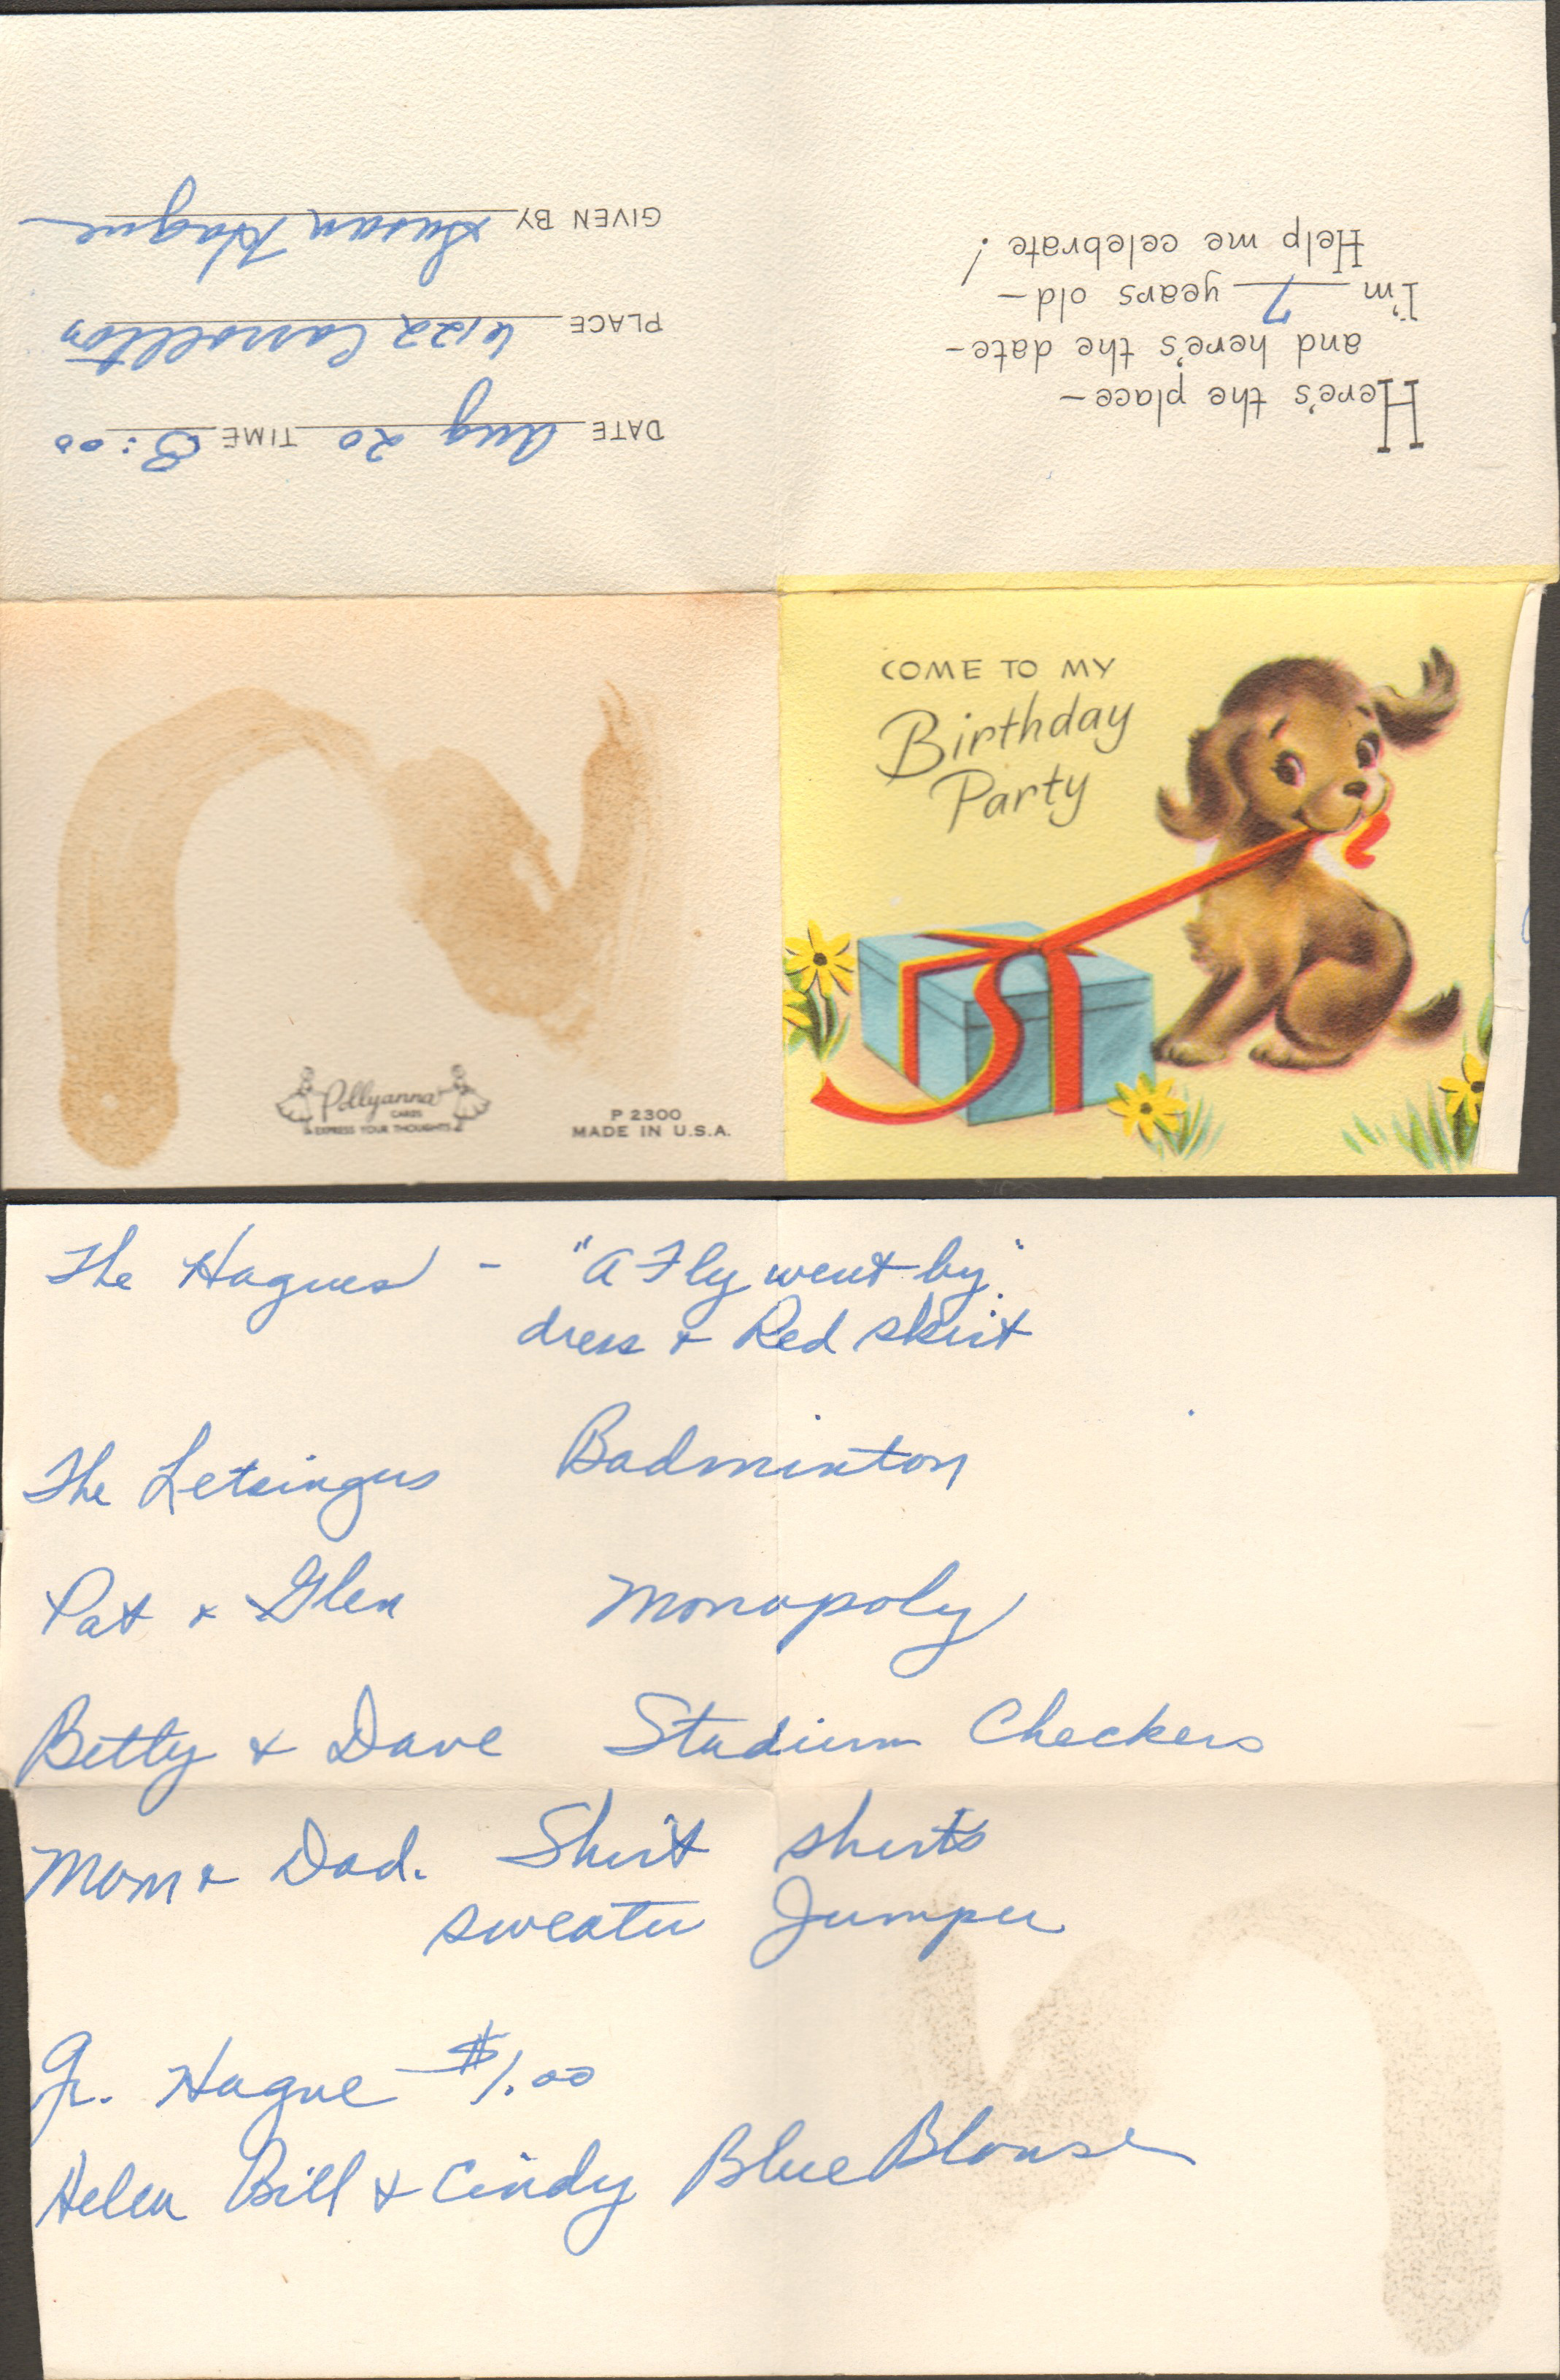 Here's the place—
and here's the date—
I'm 7 years old—
Help me celebrate!
DATE Aug 20 TIME 3:00
PLACE 6122 Carrollton
GIVEN BY Susan Hague
COME TO MY
Birthday
Party
Pollyanna
CARDS
EXPRESS YOUR THOUGHTS
P 2300
MADE IN U.S.A.
The Hagues - "A Fly went by"
dress & Red skirt
The Letsingers Badminton
Pat & Glen Monopoly
Betty & Dave Stadium Checkers
Mom & Dad. Skirt shirts
sweater Jumper
Gr. Hague - $1.00
Helen Bill & Cindy Blue Blouse